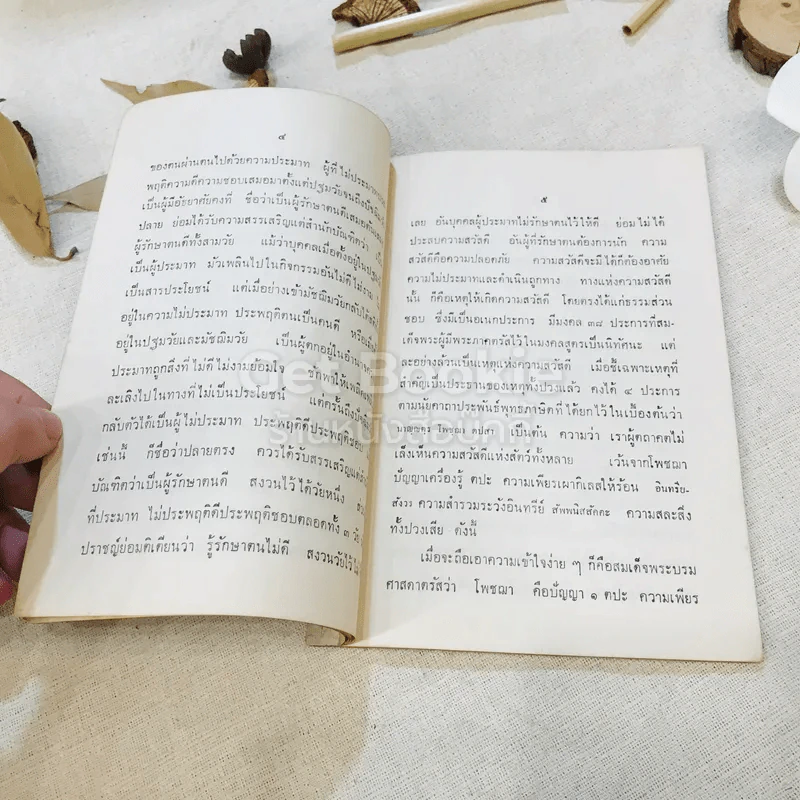 ๔
ของตนผ่านตนไปด้วยความประมาท ผู้ที่ไม่ประมาท
พฤติความดีความชอบเสมอมาตั้งแต่ปฐมวัยจนถึงปัจฉิม
เป็นผู้มีอัธยาศัยคงที่ ชื่อว่าเป็นผู้รักษาตนดีเสมอต้น
ปลาย ย่อมได้รับความสรรเสริญแต่สำนักบัณฑิตว่า
ผู้รักษาตนดีทั้งสามวัย แม้ว่าบุคคลเมื่อตั้งอยู่ในปฐม
เป็นผู้ประมาท มัวเพลินไปในกิจกรรมอันไม่ดีไม่งาม
เป็นสารประโยชน์ แต่เมื่อย่างเข้ามัชฌิมวัยกลับได้
อยู่ในความไม่ประมาท ประพฤติตนเป็นคนดี หรือเมื่อ
อยู่ในปฐมวัยและมัชฌิมวัย เป็นผู้ตกอยู่ในอำนาจ
ประมาทถูกสิ่งที่ไม่ดีไม่งามย้อมใจ ชักพาให้เพลิดเพลิน
ละเลิงไปในทางที่ไม่เป็นประโยชน์ แต่ครั้นถึงปัจฉิม
กลับตัวได้เป็นผู้ไม่ประมาท ประพฤติดีประพฤติชอบ
เช่นนี้ ก็ชื่อว่าปลายตรง ควรได้รับสรรเสริญแต่สำนัก
บัณฑิตว่าเป็นผู้รักษาตนดี สงวนไว้ได้วัยหนึ่ง
ที่ประมาท ไม่ประพฤติดีประพฤติชอบตลอดทั้ง ๓ วัย
ปราชญ์ย่อมติเตียนว่า รู้รักษาตนไม่ดี สงวนวัยไว้ไม่
๕
เลย อันบุคคลผู้ประมาทไม่รักษาตนไว้ให้ดี ย่อมไม่ได้
ประสบความสวัสดี อันผู้ที่รักษาตนต้องการนัก ความ
สวัสดีคือความปลอดภัย ความสวัสดีจะมีได้ก็ต้องอาศัย
ความไม่ประมาทและดำเนินถูกทาง ทางแห่งความสวัสดี
นั้น ก็คือเหตุให้เกิดความสวัสดี โดยตรงได้แก่ธรรมส่วน
ชอบ ซึ่งมีเป็นอเนกประการ มีมงคล ๓๘ ประการที่สม-
เด็จพระผู้มีพระภาคตรัสไว้ในมงคลสูตรเป็นนิทัศนะ แต่
ละอย่างล้วนเป็นเหตุแห่งความสวัสดี เมื่อชี้เฉพาะเหตุที่
สำคัญเป็นประธานของเหตุทั้งปวงแล้ว คงได้ ๔ ประการ
ตามนัยคาถาประพันธ์พุทธภาษิตที่ได้ยกไว้ในเบื้องต้นว่า
นาญฺญตฺร โพชฺฌา ตปสา เป็นต้น ความว่า เราผู้ตถาคตไม่
เล็งเห็นความสวัสดีแห่งสัตว์ทั้งหลาย เว้นจากโพชฌา
ปัญญาเครื่องรู้ ตปะ ความเพียรเผากิเลสให้ร้อน อินทรีย-
สังวร ความสำรวมระวังอินทรีย์ สัพพนิสสัคคะ ความสละสิ่ง
ทั้งปวงเสีย ดังนี้
เมื่อจะถือเอาความเข้าใจง่าย ๆ ก็คือสมเด็จพระบรม
ศาสดาตรัสว่า โพชฌา คือปัญญา ๑ ตปะ ความเพียร
Get Bookie
ร้านหนังสือบุ๊คกี้